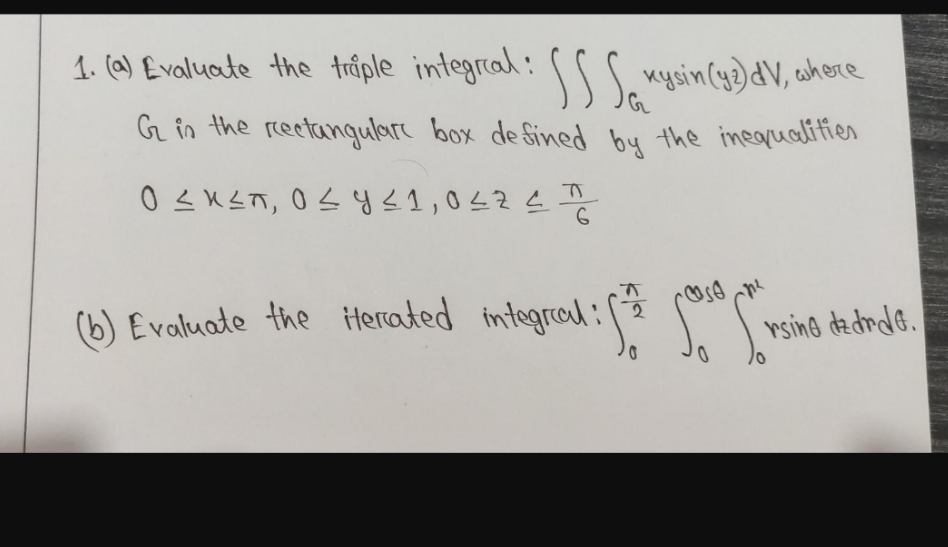 1. (a) Evaluate the triple integral: ∫∫∫_G xysin(yz)dV, where
G is the rectangular box defined by the inequalities
0 ≤ x ≤ π, 0 ≤ y ≤ 1, 0 ≤ z ≤ π/6
(b) Evaluate the iterated integral: ∫_0^{π/2} ∫_0^{cosθ} ∫_0^{r²} rsinθ dzdrdθ.